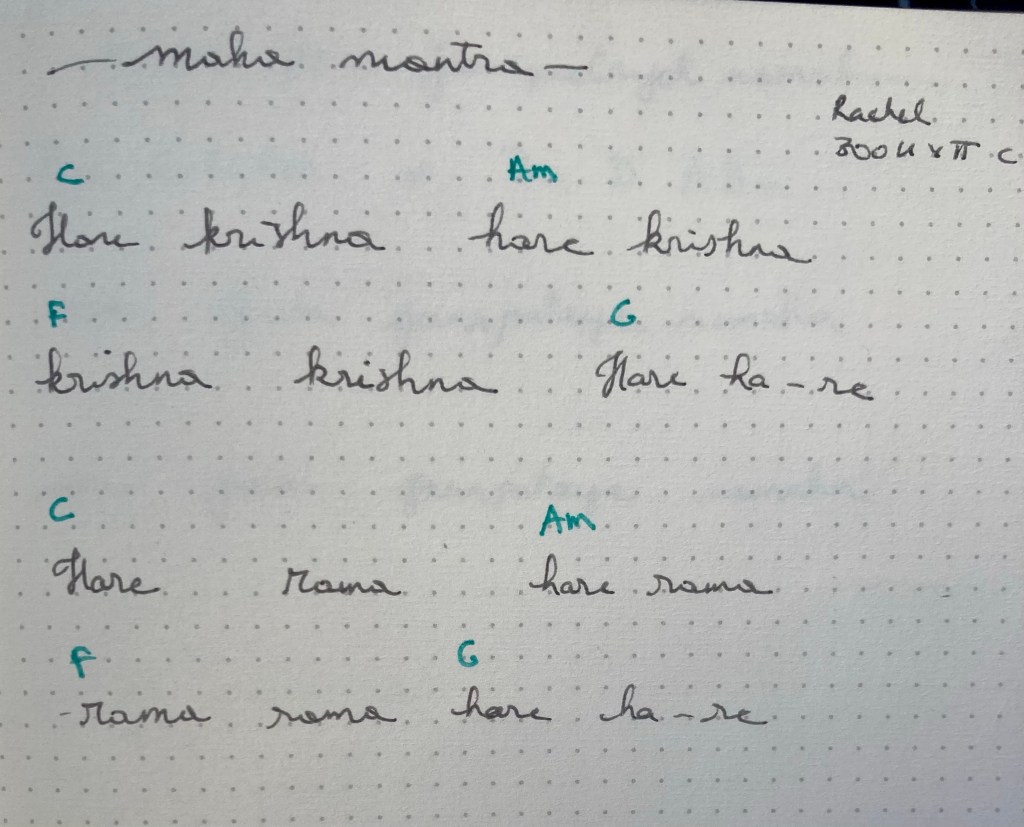 — maha mantra —
Rachel
C Am
Hare krishna hare krishna
F G
krishna krishna Hare ha-re
C Am
Hare rama hare rama
F G
-rama rama hare ha-re